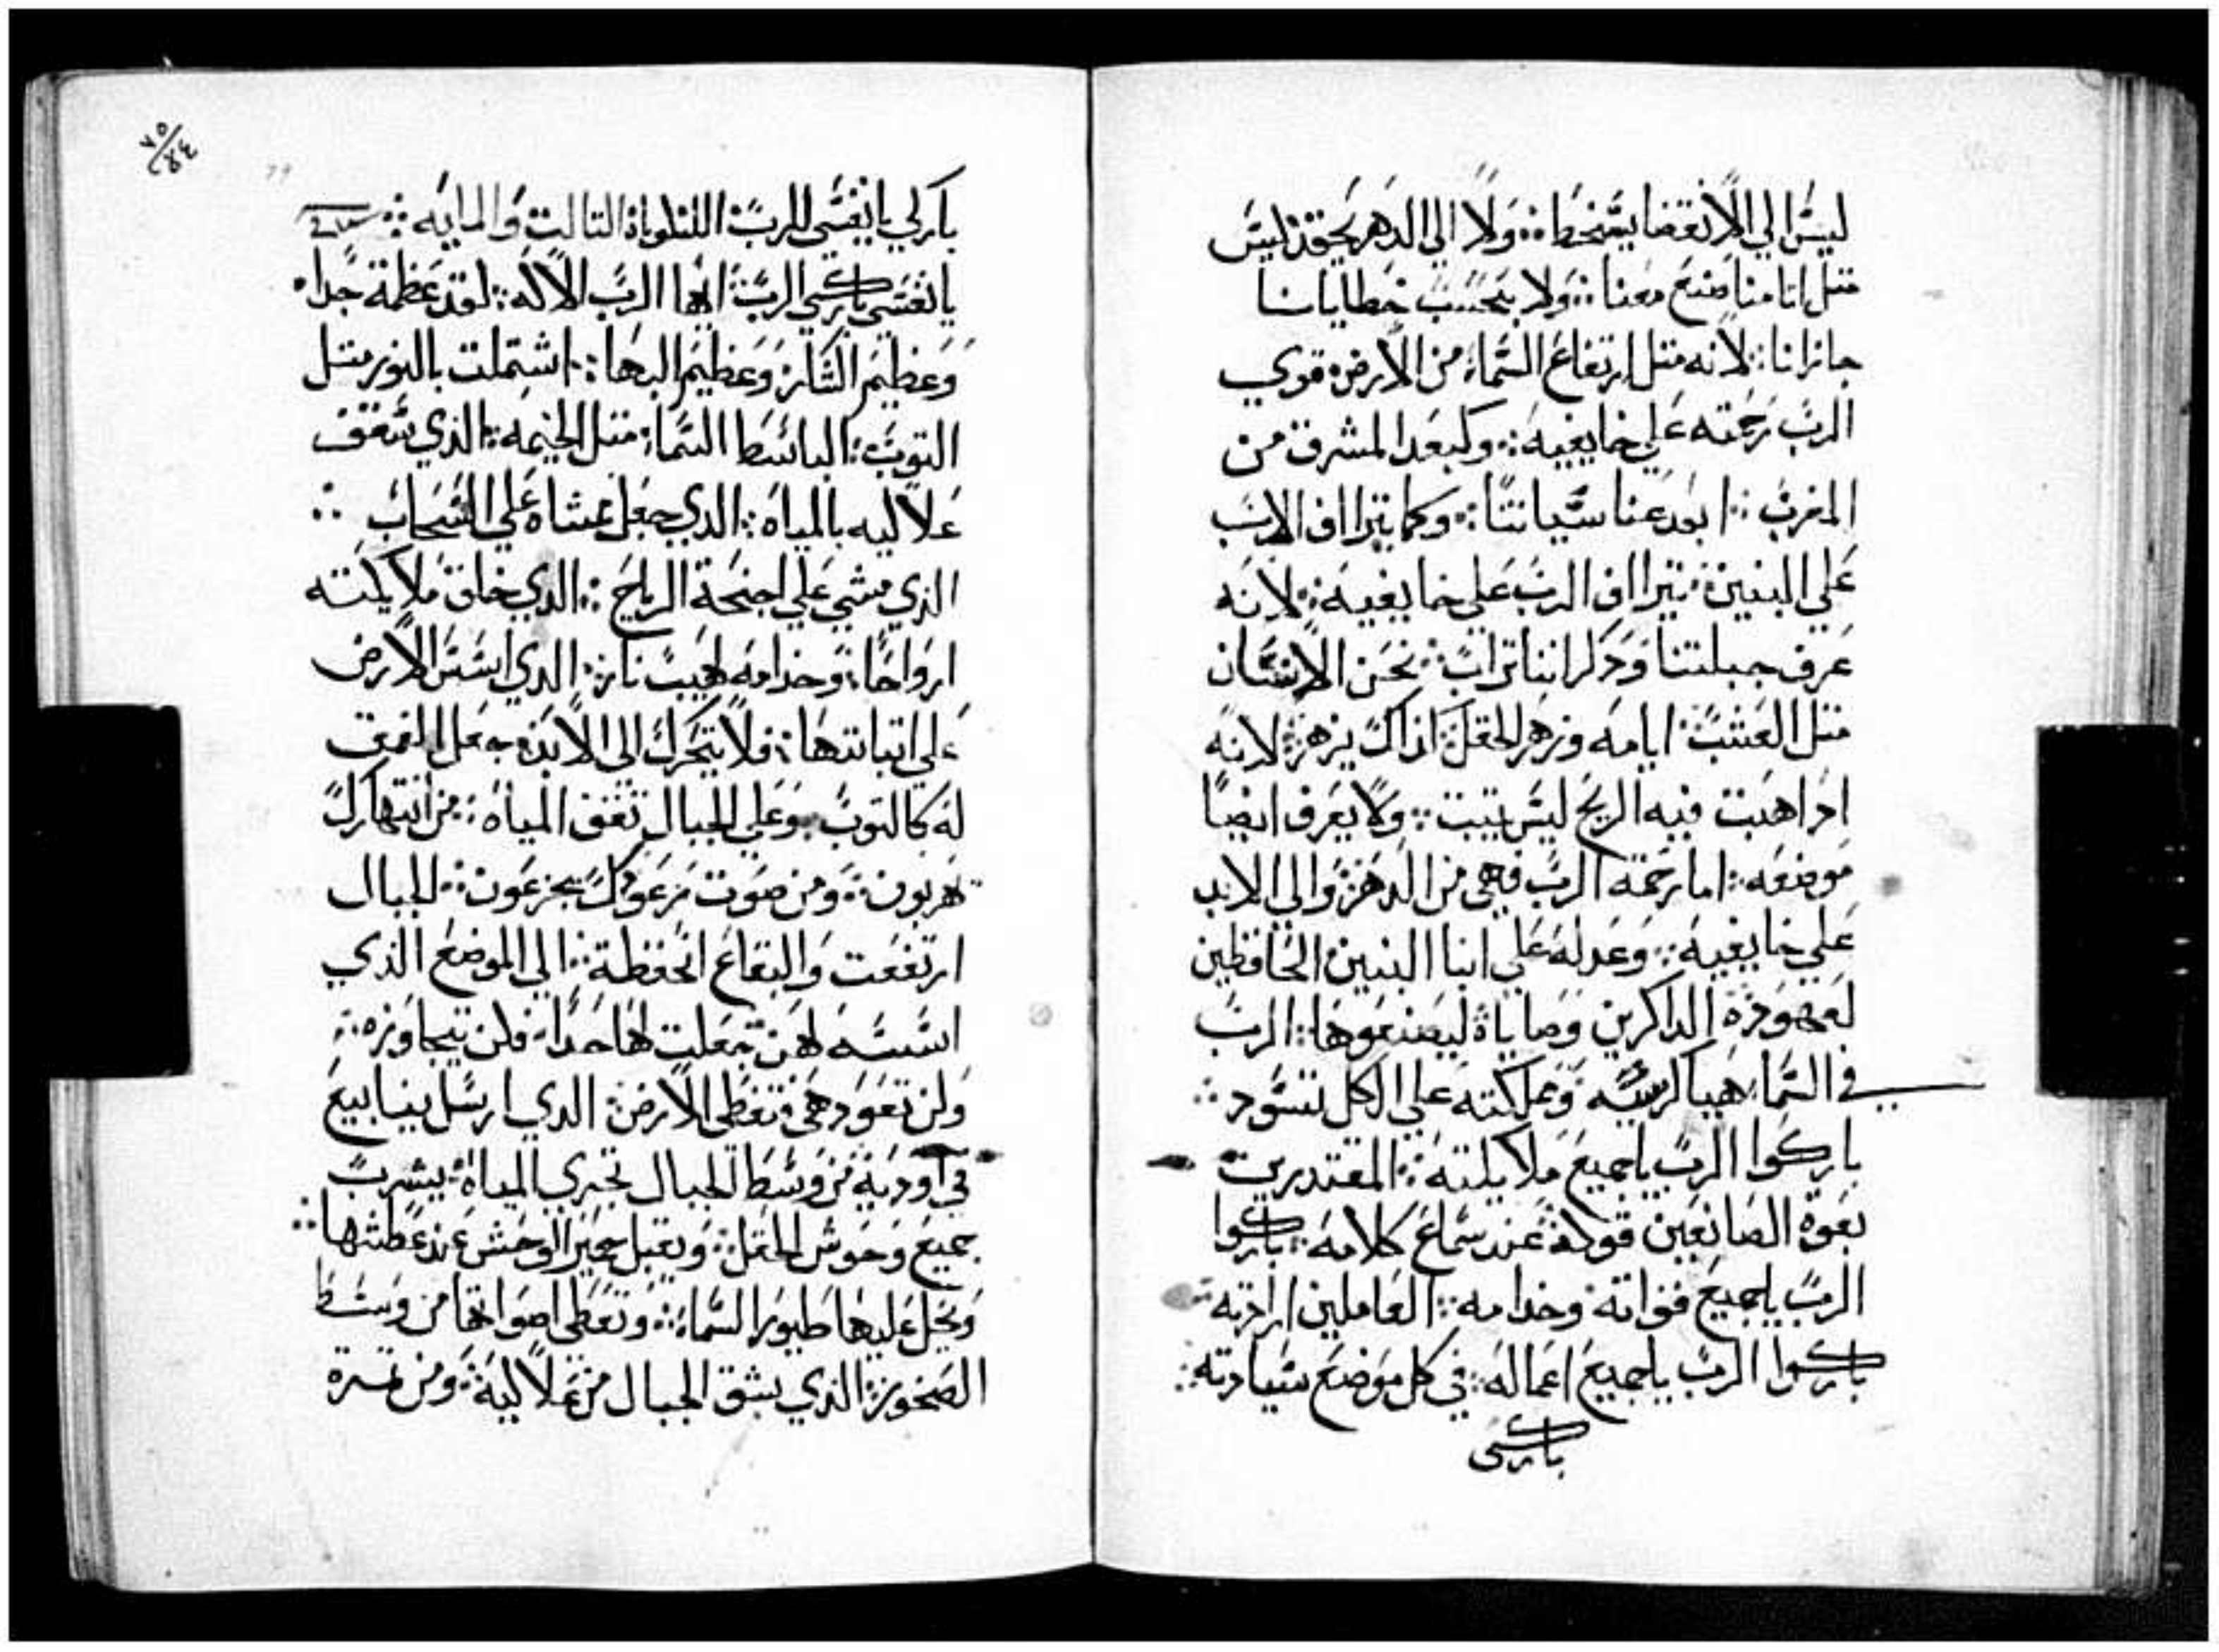 ليس الي الانقضا يسخط :: ولا الي الدهر يحقد ليس
متل اتامنا صنع معنا :: ولا بحسب خطايانا
جازانا : لانه متل ارتفاع السما : من الارض : قوي
الرب رحمته علي خايفيه :: وكبعد المشرق من
المغرب :: ابعد عنا سياتنا :: وكما يتراف الاب
علي البنين : يتراف الرب علي خايفيه :: لانه
عرف جبلتنا وذكر اننا تراب :: نحن الانسان
متل العشب : ايامه وزهر الحقل : اذاك يزهر : لانه
اذا هبت فيه الريح ليس يتبت :: ولا يعرف ايضا
موضعه :: اما رحمة الرب فهي من الدهر : والي الابد
علي خايفيه :: وعدله علي ابنا البنين : الحافظين
لعهوده : الذاكرين وصاياه ليصنعوها : الرب
في السما هيا كرسيه ومملكته علي الكل تسود ::
باركوا الرب يا جميع ملايكته :: المقتدرين
بقوة الصانعين قوله عند سماع كلامه : باركوا
الرب يا جميع قواته وخدامه :: العاملين ارادته
باركوا الرب يا جميع اعماله : في كل موضع سيادته ::
باركي
٧٥
٤٤
باركي يا نفسي الرب : التلوياه التالت والمايه ::
يا نفسي باركي الرب : ايها الرب الاله :: لقد عظمة جدا
وعظيم الشان : وعظيم البها : اشتملت بالنور متل
التوب : الباسط السما : متل الخيمه : الذي سقف
علاليه بالمياه : الذي جعل ممشاه علي السحاب ::
الذي مشي علي اجنحة الرياح :: الذي خلق ملايكته
ارواحا : وخدامه لهيب نار : الذي اسس الارض
علي اتباتتها : فلا يتحرك الي الابد : جعل العمق
له كالتوب وعلي الجبال تقف المياه : من انتهارك
تهربون :: ومن صوت رعودك يجزعون :: الجبال
ارتفعت والبقاع انخفظة :: الي الموضع الذي
اسسته لهن جعلت لها حدا : فلن يتجاوزه ::
ولن تعود هي تغطي الارض : الذي ارسل ينابيع
في اودية من وسط الجبال تجري المياه : يشرب
جميع وحوش الحقل : وتقبل حمير الوحش عند عطشها ::
وتحل عليها طيور السما : وتعطي اصواتها من وسط
الصخور : الذي يسقي الجبال من علاليه : ومن تمرة